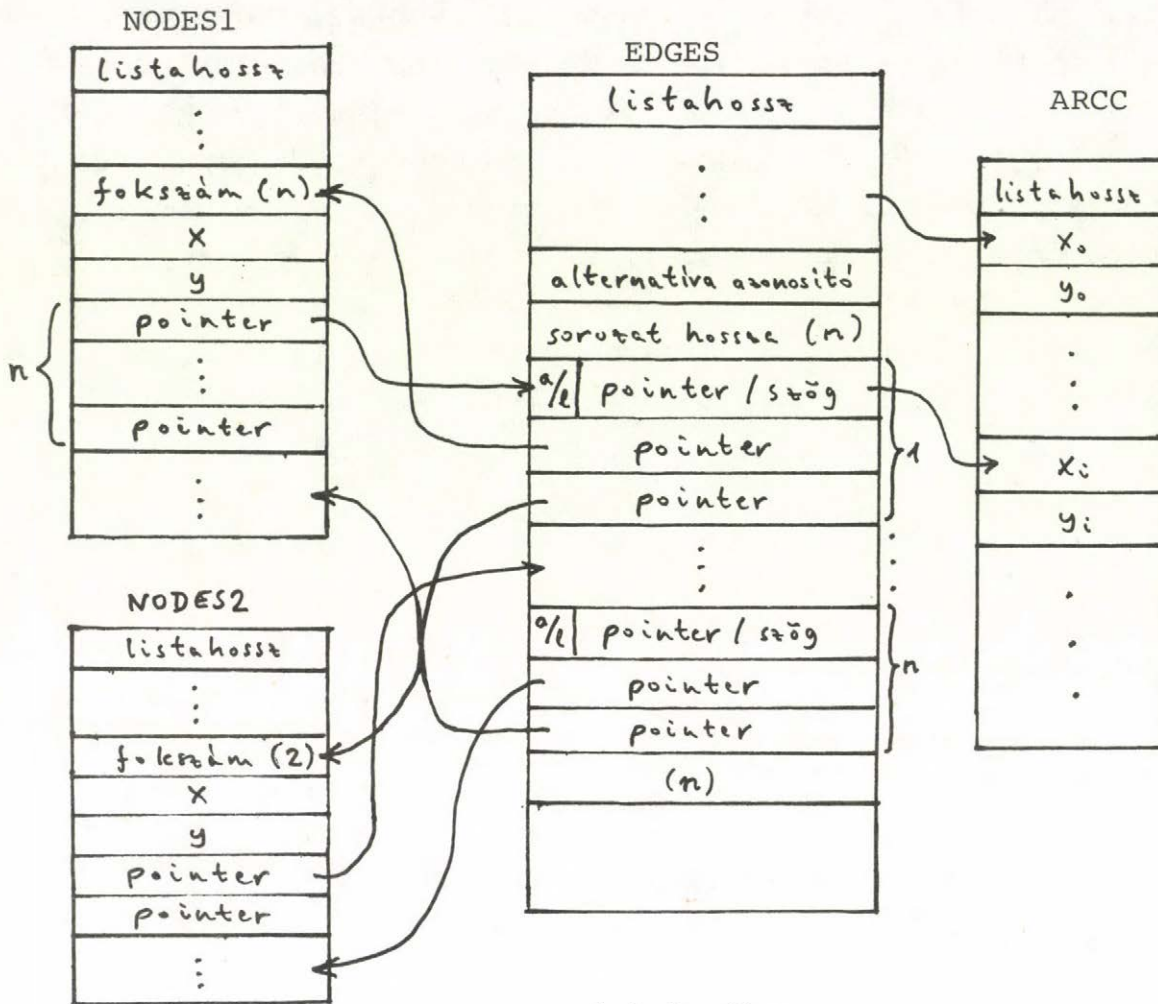 NODES1
listahossz
fokszám (n)
x
y
pointer
pointer
n
NODES2
listahossz
fokszám (2)
x
y
pointer
pointer
EDGES
listahossz
alternativa azonositó
sorozat hossza (n)
a/l pointer / szög
pointer
pointer
1
a/l pointer / szög
pointer
pointer
n
(n)
ARCC
listahossz
x₀
y₀
xᵢ
yᵢ